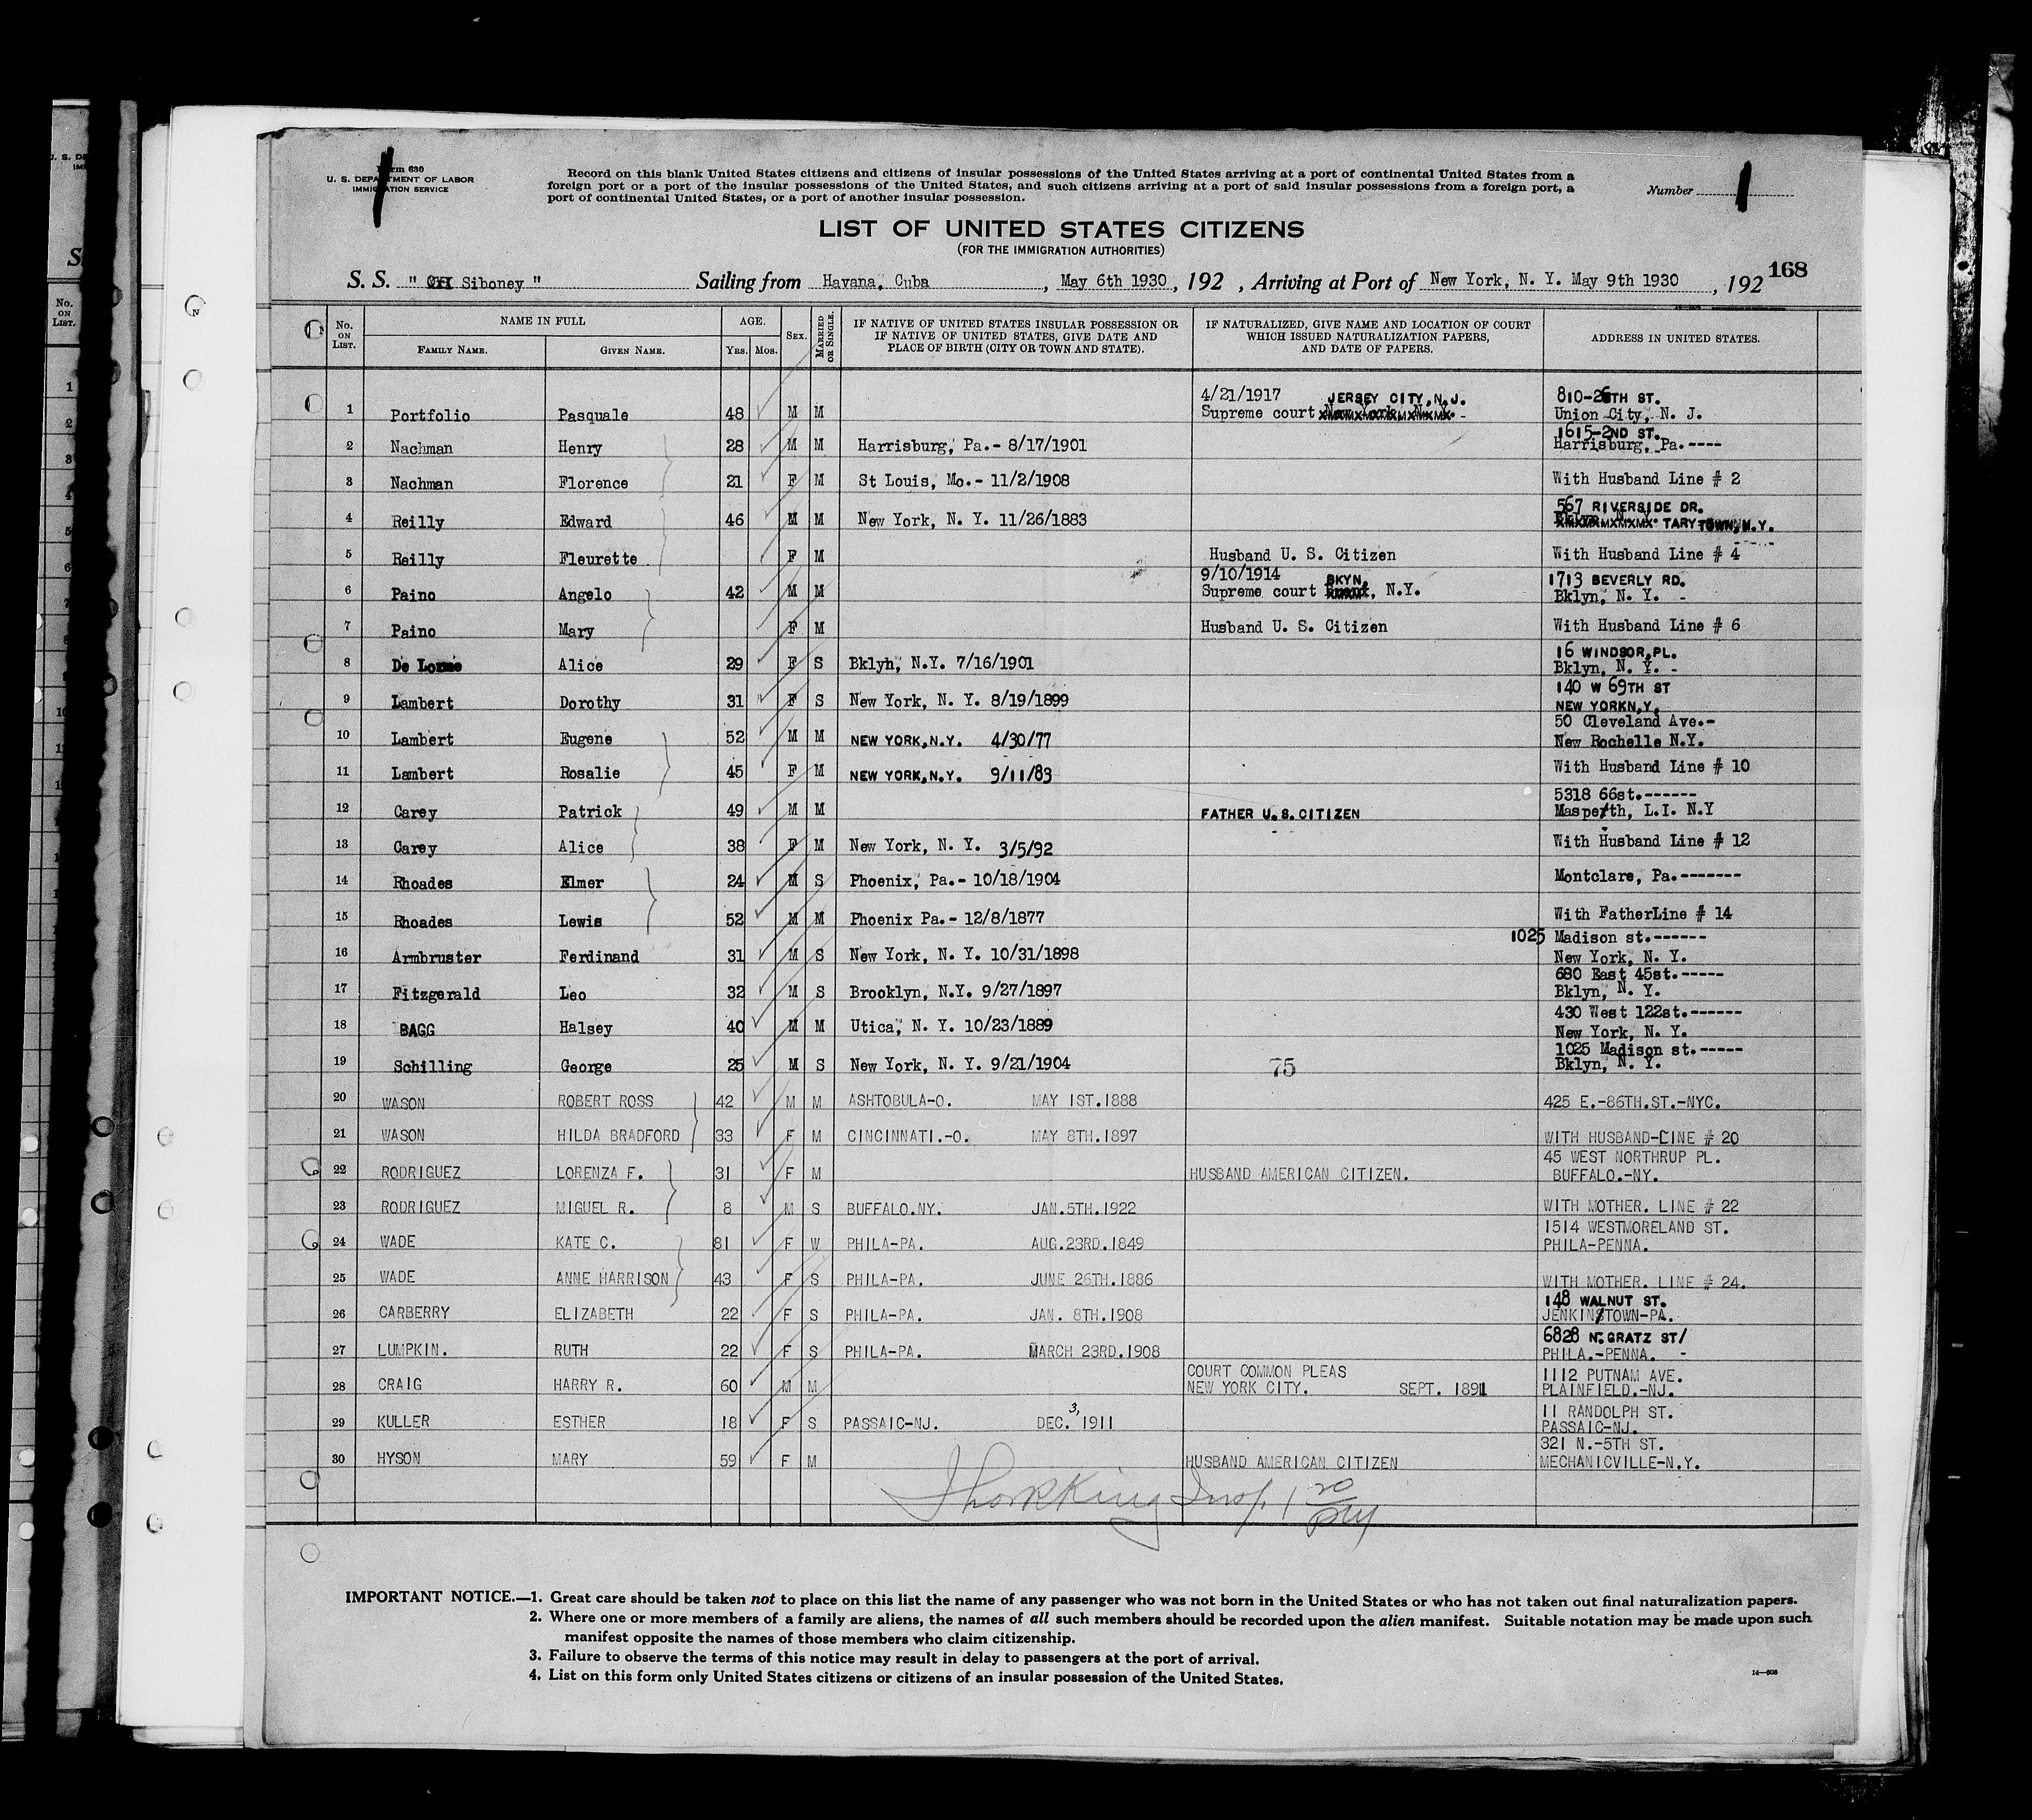 Form 630
U. S. DEPARTMENT OF LABOR
IMMIGRATION SERVICE
Record on this blank United States citizens and citizens of insular possessions of the United States arriving at a port of continental United States from a
foreign port or a port of the insular possessions of the United States, and such citizens arriving at a port of said insular possessions from a foreign port, a
port of continental United States, or a port of another insular possession.
Number 1
LIST OF UNITED STATES CITIZENS
(FOR THE IMMIGRATION AUTHORITIES)
168
S. S. " Siboney " Sailing from Havana, Cuba , May 6th 1930 , 192 , Arriving at Port of New York, N. Y. May 9th 1930 , 192
No. ON LIST. NAME IN FULL FAMILY NAME. GIVEN NAME. AGE. YRS. MOS. SEX. MARRIED OR SINGLE. IF NATIVE OF UNITED STATES INSULAR POSSESSION OR IF NATIVE OF UNITED STATES, GIVE DATE AND PLACE OF BIRTH (CITY OR TOWN AND STATE). IF NATURALIZED, GIVE NAME AND LOCATION OF COURT WHICH ISSUED NATURALIZATION PAPERS, AND DATE OF PAPERS. ADDRESS IN UNITED STATES.
1 Portfolio Pasquale 48 M M 4/21/1917 JERSEY CITY, N.J. Supreme court 810-26TH ST. Union City, N. J.
2 Nachman Henry 28 M M Harrisburg, Pa.- 8/17/1901 1615-2ND ST. Harrisburg, Pa.----
3 Nachman Florence 21 F M St Louis, Mo.- 11/2/1908 With Husband Line # 2
4 Reilly Edward 46 M M New York, N. Y. 11/26/1883 567 RIVERSIDE DR. TARYTOWN, N.Y.
5 Reilly Fleurette F M Husband U. S. Citizen With Husband Line # 4
6 Paino Angelo 42 M M 9/10/1914 Supreme court BKYN, N.Y. 1713 BEVERLY RD. Bklyn, N. Y. -
7 Paino Mary F M Husband U. S. Citizen With Husband Line # 6
8 De Lorme Alice 29 F S Bklyh, N.Y. 7/16/1901 16 WINDSOR, PL. Bklyn, N. Y. -
9 Lambert Dorothy 31 F S New York, N. Y. 8/19/1899 140 W 69TH ST NEW YORK N.Y.
10 Lambert Eugene 52 M M NEW YORK, N.Y. 4/30/77 50 Cleveland Ave.- New Rochelle N.Y.
11 Lambert Rosalie 45 F M NEW YORK, N.Y. 9/11/83 With Husband Line # 10
12 Carey Patrick 49 M M FATHER U.S. CITIZEN 5318 66st.------ Maspeth, L.I. N.Y
13 Carey Alice 38 F M New York, N. Y. 3/5/92 With Husband Line # 12
14 Rhoades Elmer 24 M S Phoenix, Pa.- 10/18/1904 Montclare, Pa.-------
15 Rhoades Lewis 52 M M Phoenix Pa.- 12/8/1877 With FatherLine # 14
16 Armbruster Ferdinand 31 M S New York, N. Y. 10/31/1898 1025 Madison st.------ New York, N. Y.
17 Fitzgerald Leo 32 M S Brooklyn, N.Y. 9/27/1897 680 East 45st.----- Bklyn, N. Y.
18 BAGG Halsey 40 M M Utica, N. Y. 10/23/1889 430 West 122st.------ New York, N. Y.
19 Schilling George 25 M S New York, N. Y. 9/21/1904 75 1025 Madison st.----- Bklyn, N. Y.
20 WASON ROBERT ROSS 42 M M ASHTOBULA-O. MAY 1ST.1888 425 E.-86TH.ST.-NYC.
21 WASON HILDA BRADFORD 33 F M CINCINNATI.-O. MAY 8TH.1897 WITH HUSBAND-LINE # 20
22 RODRIGUEZ LORENZA F. 31 F M HUSBAND AMERICAN CITIZEN. 45 WEST NORTHRUP PL. BUFFALO.-NY.
23 RODRIGUEZ MIGUEL R. 8 M S BUFFALO.NY. JAN.5TH.1922 WITH MOTHER. LINE # 22
24 WADE KATE C. 81 F W PHILA-PA. AUG.23RD.1849 1514 WESTMORELAND ST. PHILA-PENNA.
25 WADE ANNE HARRISON 43 F S PHILA-PA. JUNE 26TH.1886 WITH MOTHER. LINE # 24.
26 CARBERRY ELIZABETH 22 F S PHILA-PA. JAN. 8TH.1908 148 WALNUT ST. JENKINTOWN-PA.
27 LUMPKIN. RUTH 22 F S PHILA-PA. MARCH 23RD.1908 6828 N. GRATZ ST/ PHILA.-PENNA. -
28 CRAIG HARRY R. 60 M M COURT COMMON PLEAS NEW YORK CITY. SEPT. 1891 1112 PUTNAM AVE. PLAINFIELD.-NJ.
29 KULLER ESTHER 18 F S PASSAIC-NJ. DEC. 3, 1911 11 RANDOLPH ST. PASSAIC-NJ.
30 HYSON MARY 59 F M HUSBAND AMERICAN CITIZEN 321 N.-5TH ST. MECHANICVILLE-N.Y.
IMPORTANT NOTICE.—1. Great care should be taken not to place on this list the name of any passenger who was not born in the United States or who has not taken out final naturalization papers.
2. Where one or more members of a family are aliens, the names of all such members should be recorded upon the alien manifest. Suitable notation may be made upon such
manifest opposite the names of those members who claim citizenship.
3. Failure to observe the terms of this notice may result in delay to passengers at the port of arrival.
4. List on this form only United States citizens or citizens of an insular possession of the United States.